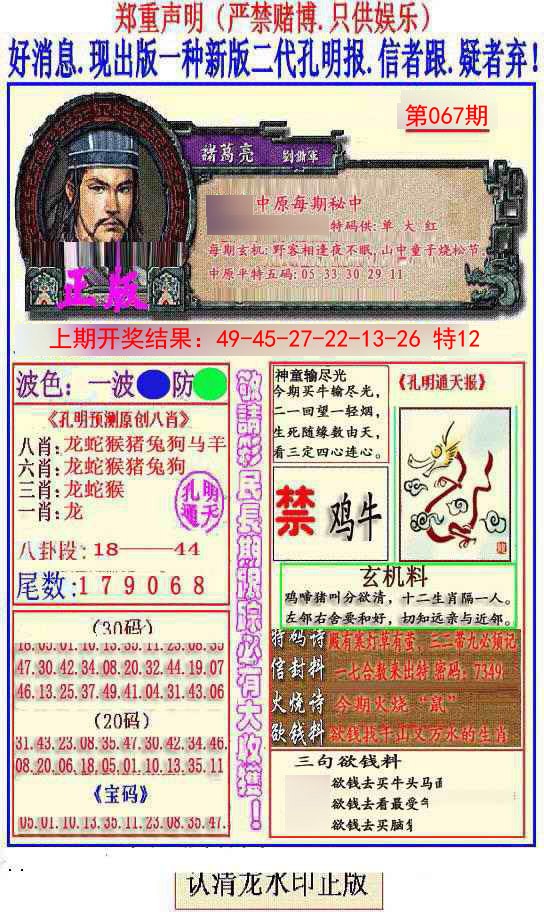 郑重声明（严禁赌博.只供娱乐）
好消息.现出版一种新版二代孔明报.信者跟.疑者弃!
第067期
諸葛亮
中原每期秘中
特码供:单 大 红
每期玄机:野客相逢夜不眠,山中童子烧松节.
中原平特五码:05 33 30 29 11
正版
上期开奖结果：49-45-27-22-13-26 特12
波色：一波 防
《孔明预测原创八肖》
八肖:龙蛇猴猪兔狗马羊
六肖:龙蛇猴猪兔狗
三肖:龙蛇猴
一肖:龙
孔明
通天
八卦段:18——44
尾数:179068
敬請彩民長期跟踪必有大收獲！
神童输尽光
今期买牛输尽光,
二一回望一轻烟,
生死随缘数由天,
看三定四心连心。
《孔明通天报》
禁 鸡牛
玄机料
鸡啼猪叫分欲清，十二生肖隔一人。
左邻右舍要和好，切知远亲与近邻。
(30码)
18.05.01.10.13.35.11.23.08.35
47.30.42.34.08.20.32.44.19.07
46.13.25.37.49.41.04.31.43.06
(20码)
31.43.23.08.35.47.30.42.34.46.
08.20.06.18.05.01.10.13.35.11
《宝码》
05.01.10.13.35.11.23.08.35.47.
特码诗 殿有寒灯草有萤，三二带九必须记
信封料 一七合数来出特 密码：7349
火烧诗 今期火烧“鼠”
欲钱料 欲钱找千山又万水的生肖
三句欲钱料
欲钱去买牛头马面
欲钱去看最受
欲钱去买脑
认清龙水印正版